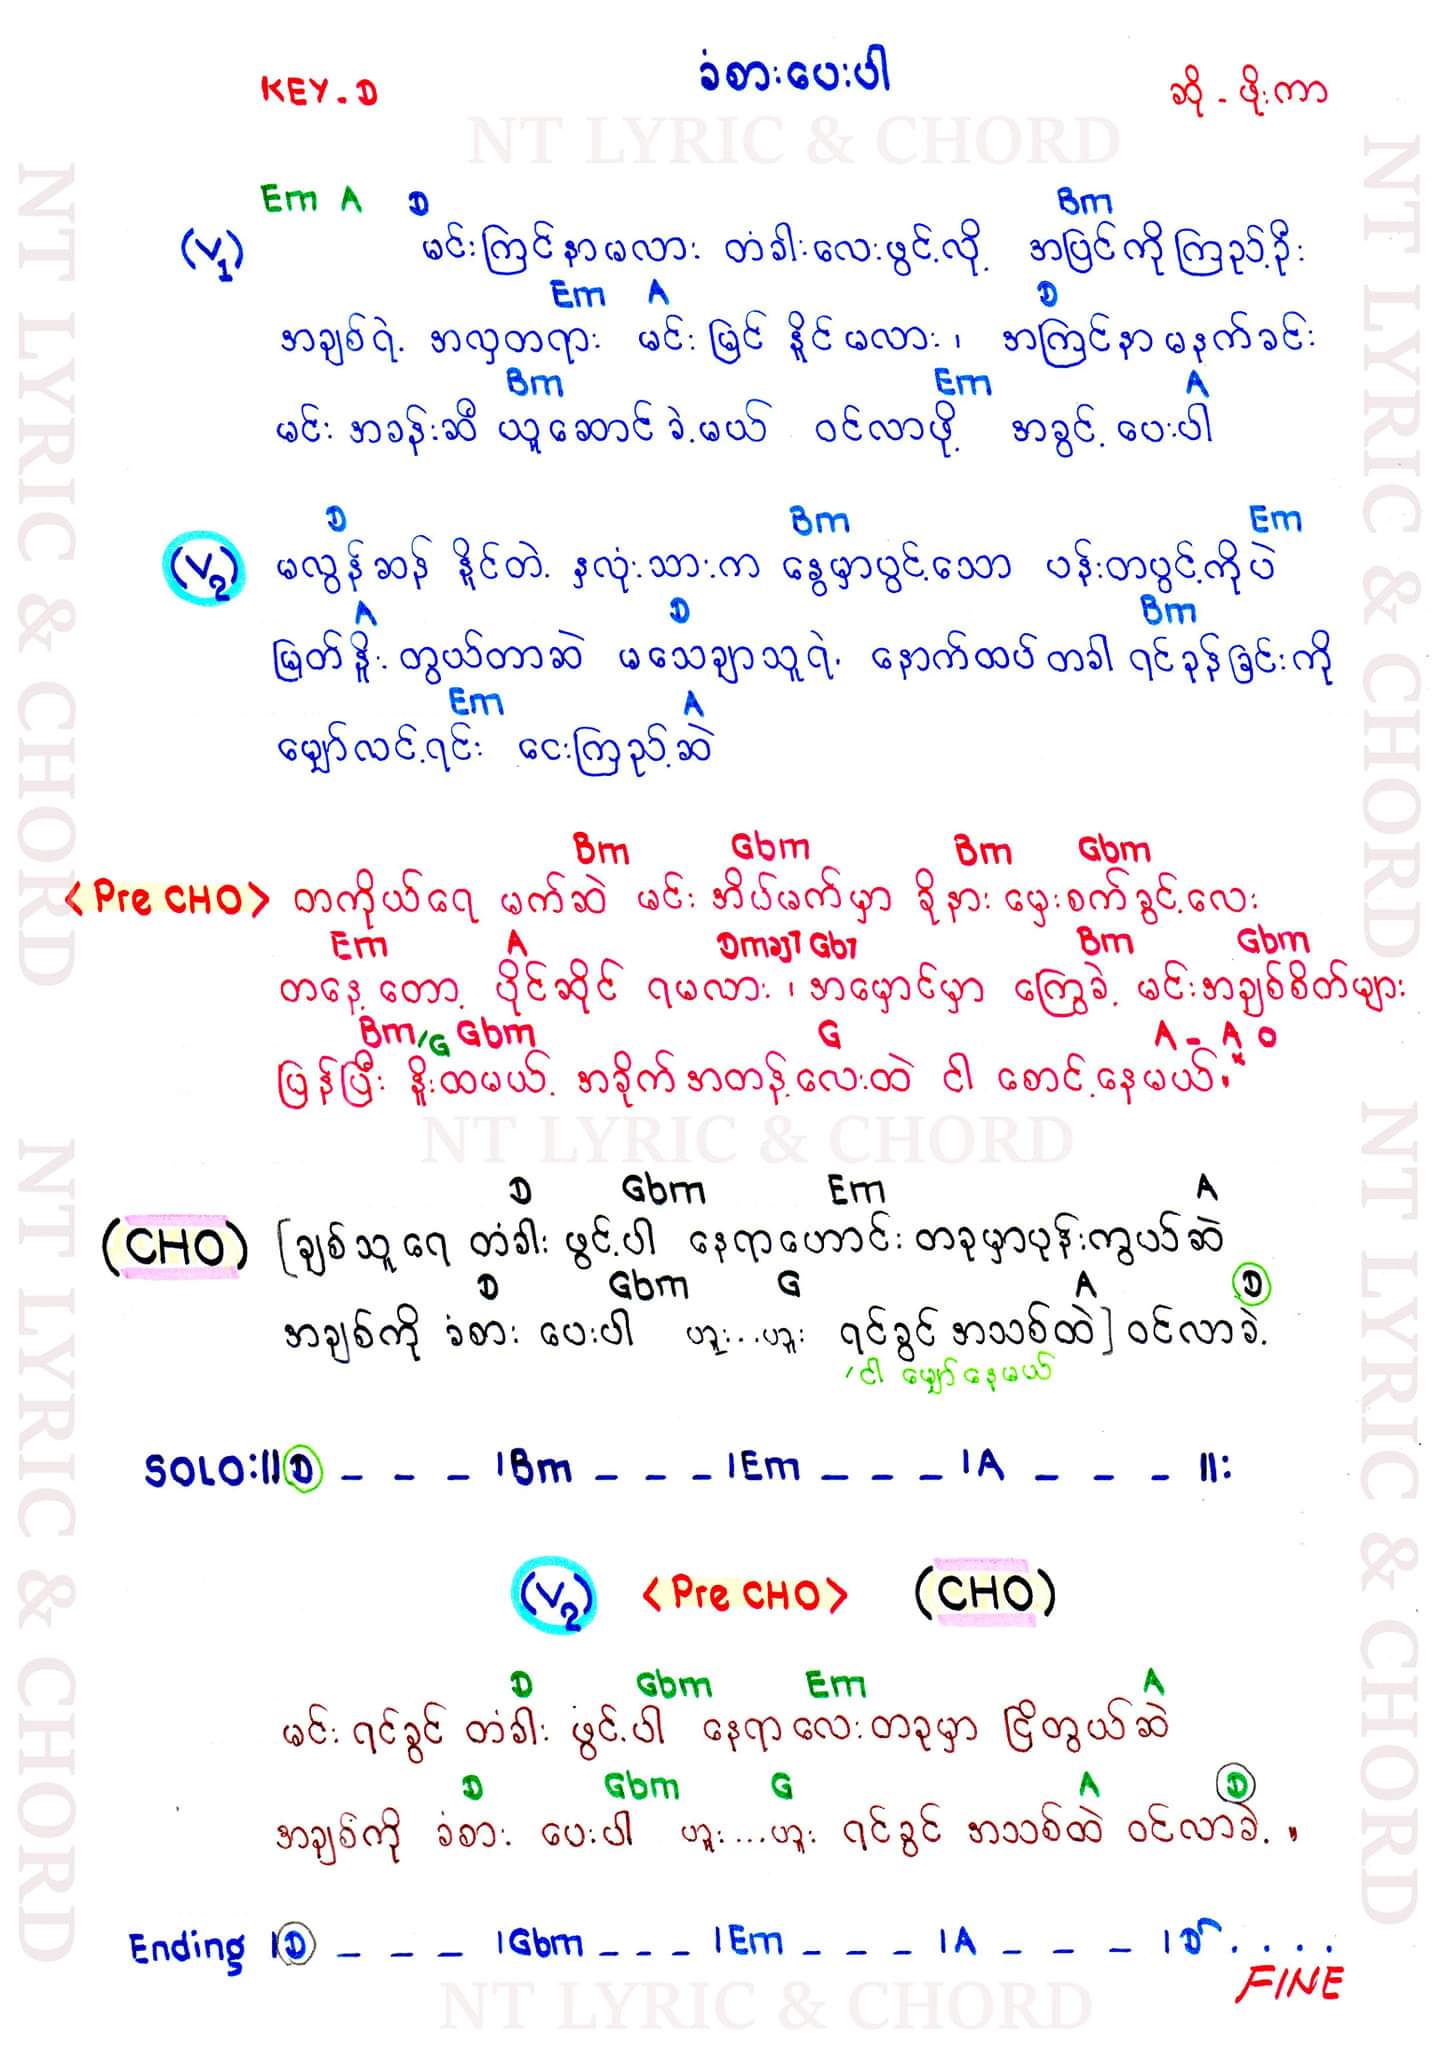 KEY-D ခံစားပေးပါ ဆို - ဖိုးကာ
NT LYRIC & CHORD
Em A D Bm
(V1) မင်းကြင်နာမလား တံခါးလေးဖွင့်လို့ အပြင်ကိုကြည့်ဦး
Em A D
အချစ်ရဲ့ အလှတရား မင်းမြင်နိူင်မလား၊ အကြင်နာမနက်ခင်း
Bm Em A
မင်းအခန်းဆီ ယူဆောင်ခဲ့မယ် ဝင်လာဖို့ အခွင့်ပေးပါ
D Bm Em
(V2) မလွန်ဆန်နိူင်တဲ့ နှလုံးသားက နွေမှာပွင့်သော ပန်းတပွင့်ကိုပဲ
A D Bm
မြတ်နိူးတွယ်တာဆဲ မသေချာသူရဲ့ နောက်ထပ်တခါ ရင်ခုန်ခြင်းကို
Em A
မျှော်လင့်ရင်း ငေးကြည့်ဆဲ
Bm Gbm Bm Gbm
<Pre CHO> တကိုယ်ရေ မက်ဆဲ မင်းအိပ်မက်မှာ ခိုနားမှေးစက်ခွင့်လေး
Em A Dmaj7 Gb7 Bm Gbm
တနေ့တော့ ပိုင်ဆိုင်ရမလား၊ အမှောင်မှာ ကြွေခဲ့ မင်းအချစ်စိတ်များ
Bm/G Gbm G A - A 0
ပြန်ပြီး နိူးထမယ့် အခိုက်အတန့်လေးထဲ ငါ စောင့်နေမယ်။
NT LYRIC & CHORD
D Gbm Em A
(CHO) [ချစ်သူရေ တံခါးဖွင့်ပါ နေရာဟောင်းတခုမှာပုန်းကွယ်ဆဲ
D Gbm G A D
အချစ်ကို ခံစားပေးပါ ဟူး...ဟူး ရင်ခွင်အသစ်ထဲ] ဝင်လာခဲ့
/ငါ မျှော်နေမယ်
SOLO:||D _ _ _ |Bm _ _ _ |Em _ _ _ |A _ _ _ ||:
(V2) <Pre CHO> (CHO)
D Gbm Em A
မင်းရင်ခွင်တံခါးဖွင့်ပါ နေရာလေးတခုမှာ ငြိတွယ်ဆဲ
D Gbm G A D
အချစ်ကို ခံစားပေးပါ ဟူး...ဟူး ရင်ခွင်အသစ်ထဲ ဝင်လာခဲ့။
Ending |D _ _ _ |Gbm _ _ _ |Em _ _ _ |A _ _ _ |D . . . .
FINE
NT LYRIC & CHORD
NT LYRIC & CHORD
NT LYRIC & CHORD
NT LYRIC & CHORD
NT LYRIC & CHORD